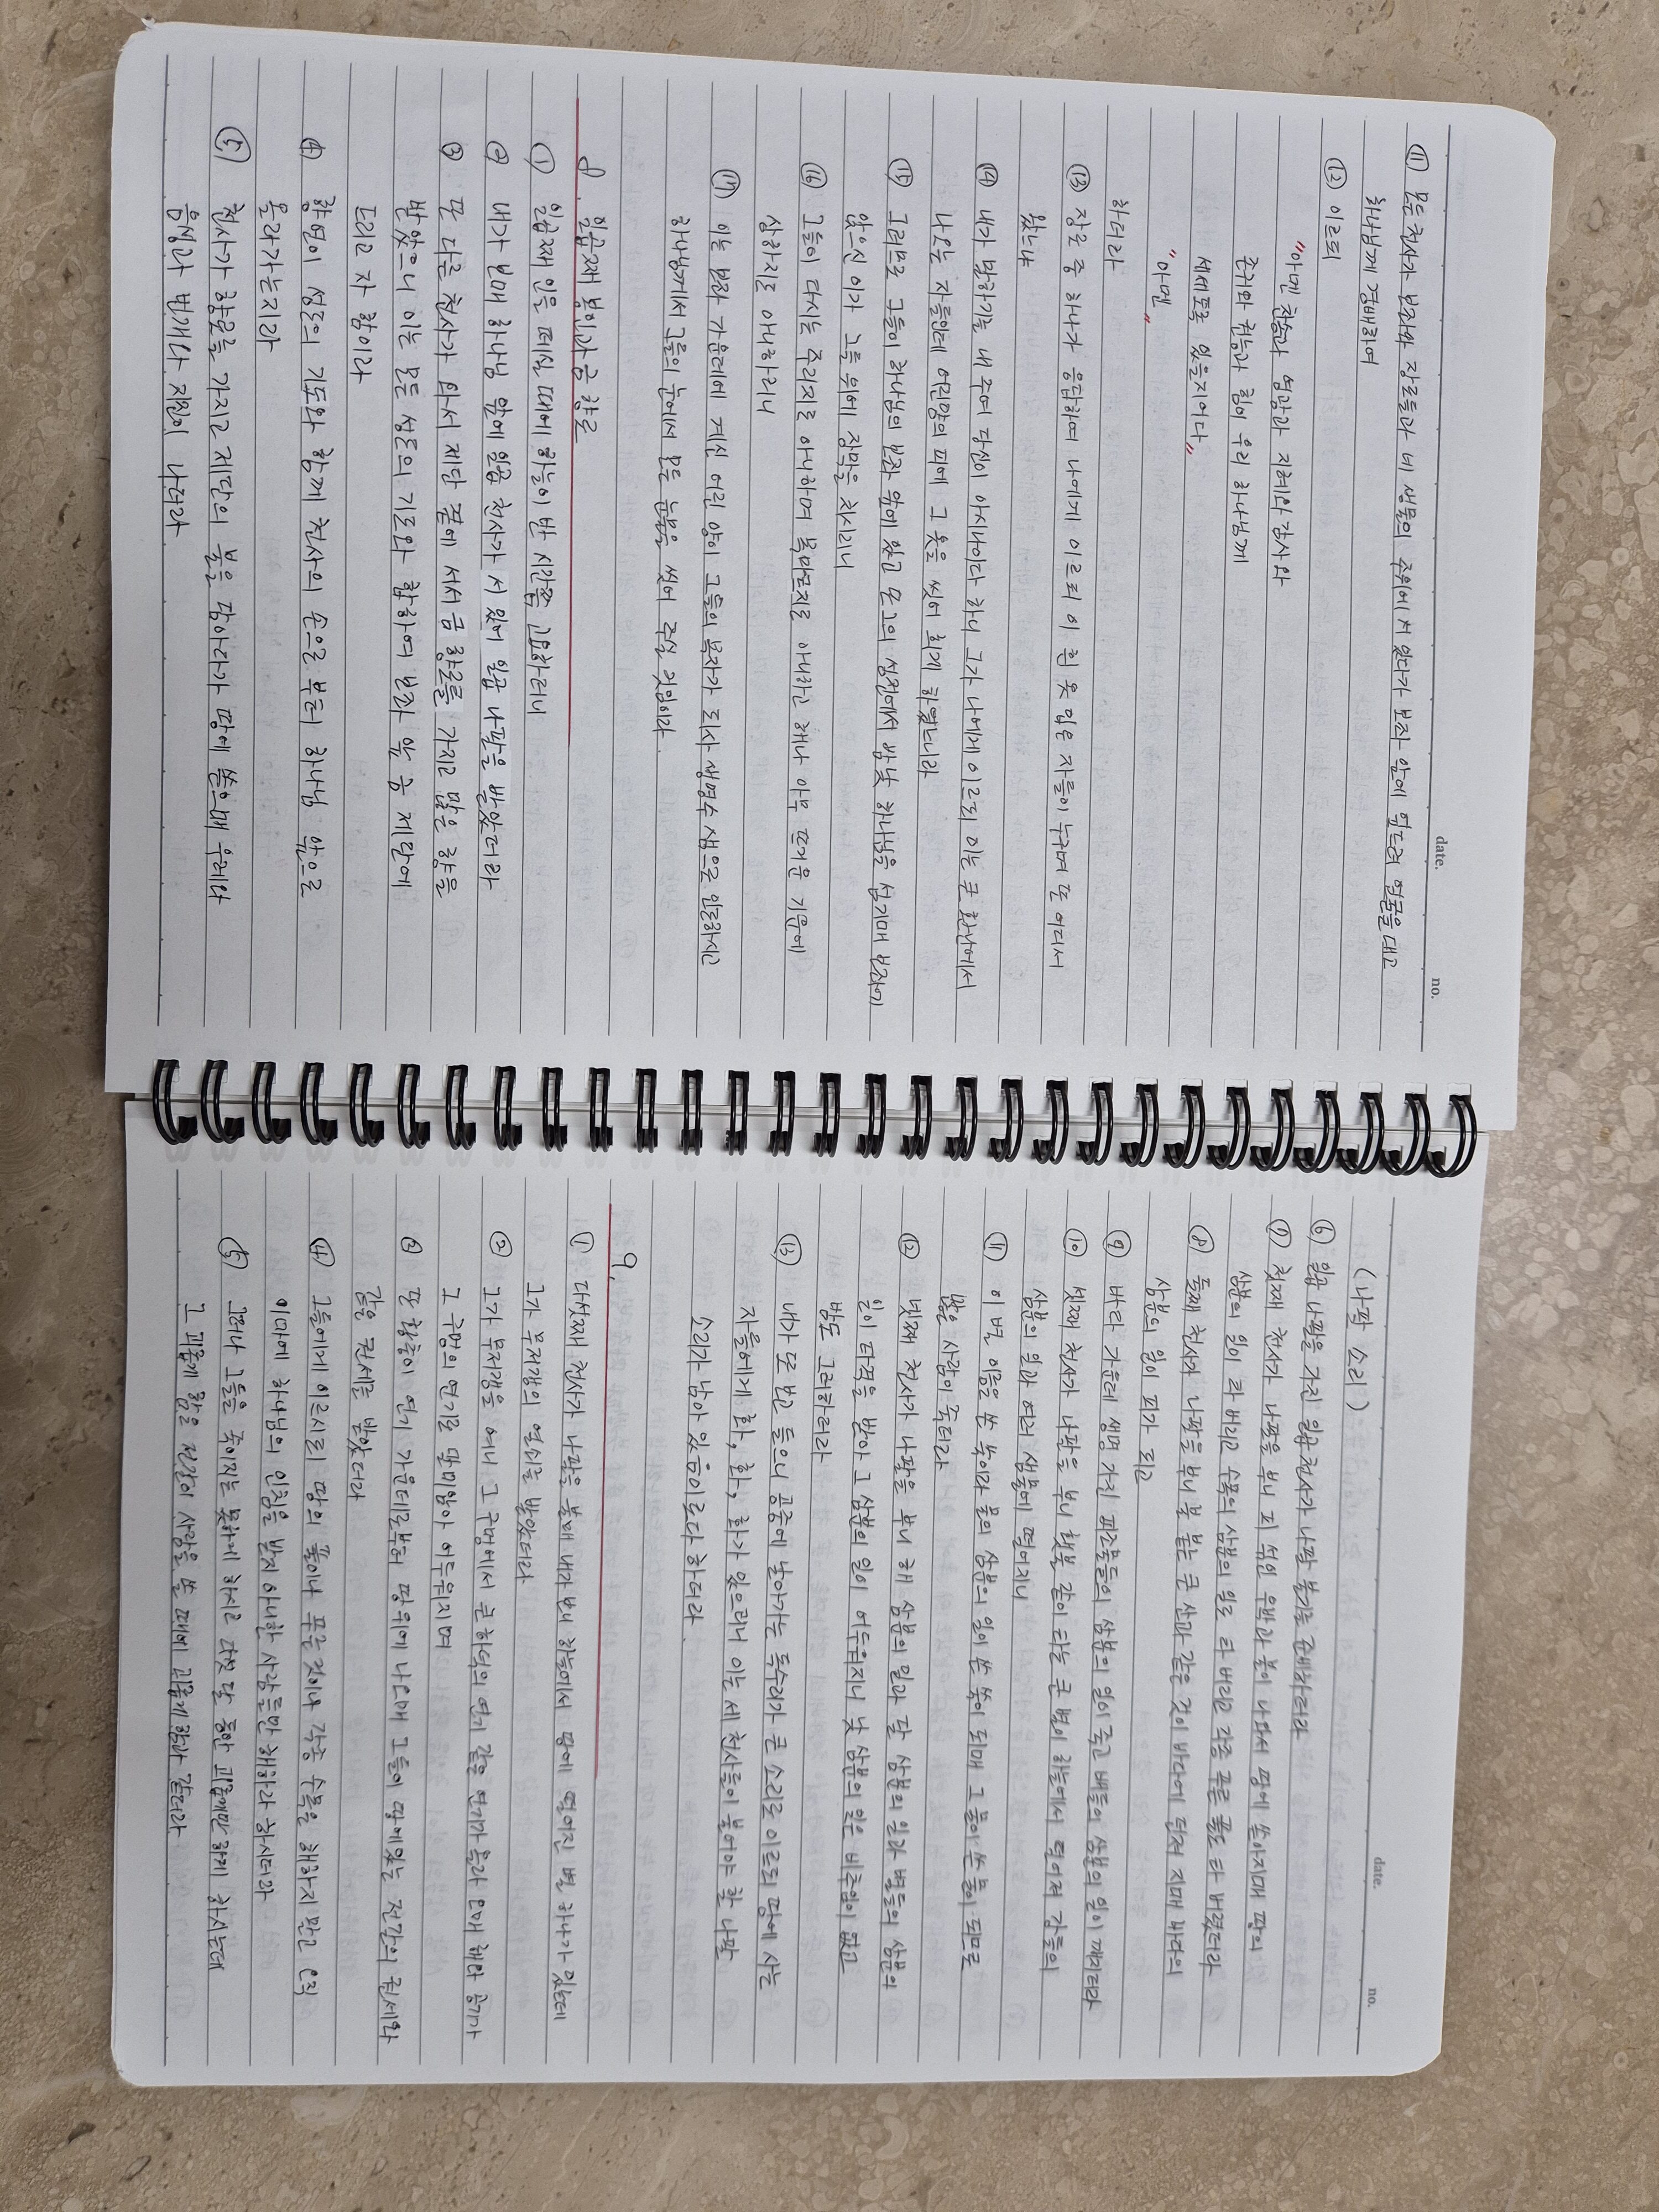 date.
no.
⑪ 모든 천사가 보좌와 장로들과 네 생물의 주위에 서 있다가 보좌 앞에 엎드려 얼굴을 대고
하나님께 경배하여
⑫ 이르되
"아멘 찬송과 영광과 지혜와 감사와
존귀와 권능과 힘이 우리 하나님께
세세토록 있을지어다"
"아멘"
하더라
⑬ 장로 중 하나가 응답하여 나에게 이르되 이 흰 옷 입은 자들이 누구며 또 어디서
왔느냐
⑭ 내가 말하기를 내 주여 당신이 아시나이다 하니 그가 나에게 이르되 이는 큰 환난에서
나오는 자들인데 어린양의 피에 그 옷을 씻어 희게 하였느니라
⑮ 그러므로 그들이 하나님의 보좌 앞에 있고 또 그의 성전에서 밤낮 하나님을 섬기매 보좌에
앉으신 이가 그들 위에 장막을 치시리니
⑯ 그들이 다시는 주리지도 아니하며 목마르지도 아니하고 해나 아무 뜨거운 기운에
상하지도 아니하리니
⑰ 이는 보좌 가운데에 계신 어린 양이 그들의 목자가 되사 생명수 샘으로 인도하시고
하나님께서 그들의 눈에서 모든 눈물을 씻어 주실 것임이라.
8. 일곱째 봉인과 금 향로
① 일곱째 인을 떼실 때에 하늘이 반 시간쯤 고요하더니
② 내가 보매 하나님 앞에 일곱 천사가 서 있어 일곱 나팔을 받았더라
③ 또 다른 천사가 와서 제단 곁에 서서 금 향로를 가지고 많은 향을
받았으니 이는 모든 성도의 기도와 합하여 보좌 앞 금 제단에
드리고 자 함이라
④ 향연이 성도의 기도와 함께 천사의 손으로 부터 하나님 앞으로
올라가는지라
⑤ 천사가 향로를 가지고 제단의 불을 담아다가 땅에 쏟으매 우레와
음성과 번개와 지진이 나더라
date.
no.
(나팔 소리)
⑥ 일곱 나팔을 가진 일곱천사가 나팔 불기를 준비하더라
⑦ 첫째 천사가 나팔을 부니 피 섞인 우박과 불이 나와서 땅에 쏟아지매 땅의
삼분의 일이 타 버리고 수목의 삼분의 일도 타 버리고 각종 푸른 풀도 타 버렸더라
⑧ 둘째 천사가 나팔을 부니 불 붙는 큰 산과 같은 것이 바다에 던져 지매 바다의
삼분의 일이 피가 되고
⑨ 바다 가운데 생명 가진 피조물들의 삼분의 일이 죽고 배들의 삼분의 일이 깨지더라
⑩ 셋째 천사가 나팔을 부니 횃불 같이 타는 큰 별이 하늘에서 떨어져 강들의
삼분의 일과 여러 샘물에 떨어지니
⑪ 이 별 이름은 쓴 쑥이라 물의 삼분의 일이 쓴 쑥이 되매 그 물이 쓴 물이 되므로
많은 사람이 죽더라
⑫ 넷째 천사가 나팔을 부니 해 삼분의 일과 달 삼분의 일과 별들의 삼분의
일이 타격을 받아 그 삼분의 일이 어두워지니 낮 삼분의 일은 비추임이 없고
밤도 그러하더라
⑬ 내가 또 보고 들으니 공중에 날아가는 독수리가 큰 소리로 이르되 땅에 사는
자들에게 화, 화, 화가 있으리니 이는 세 천사들이 불어야 할 나팔
소리가 남아 있음이로다 하더라.
9.
① 다섯째 천사가 나팔을 불매 내가 보니 하늘에서 땅에 떨어진 별 하나가 있는데
그가 무저갱의 열쇠를 받았더라
② 그가 무저갱을 여니 그 구멍에서 큰 화덕의 연기 같은 연기가 올라 오매 해와 공기가
그 구멍의 연기로 말미암아 어두워지며
③ 또 황충이 연기 가운데로부터 땅위에 나오매 그들이 땅에있는 전갈의 권세와
같은 권세를 받았더라
④ 그들에게 이르시되 땅의 풀이나 푸른 것이나 각종 수목은 해하지 말고 오직
이마에 하나님의 인침을 받지 아니한 사람들만 해하라 하시더라
⑤ 그러나 그들을 죽이지는 못하게 하시고 다섯 달 동안 괴롭게만 하게 하시는데
그 괴롭게 함은 전갈이 사람을 쏠 때에 괴롭게 함과 같더라